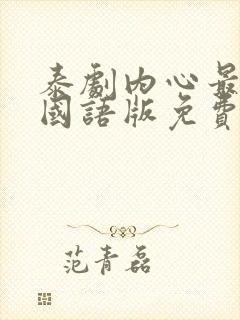 泰劇内心最
國語版免費
范青磊